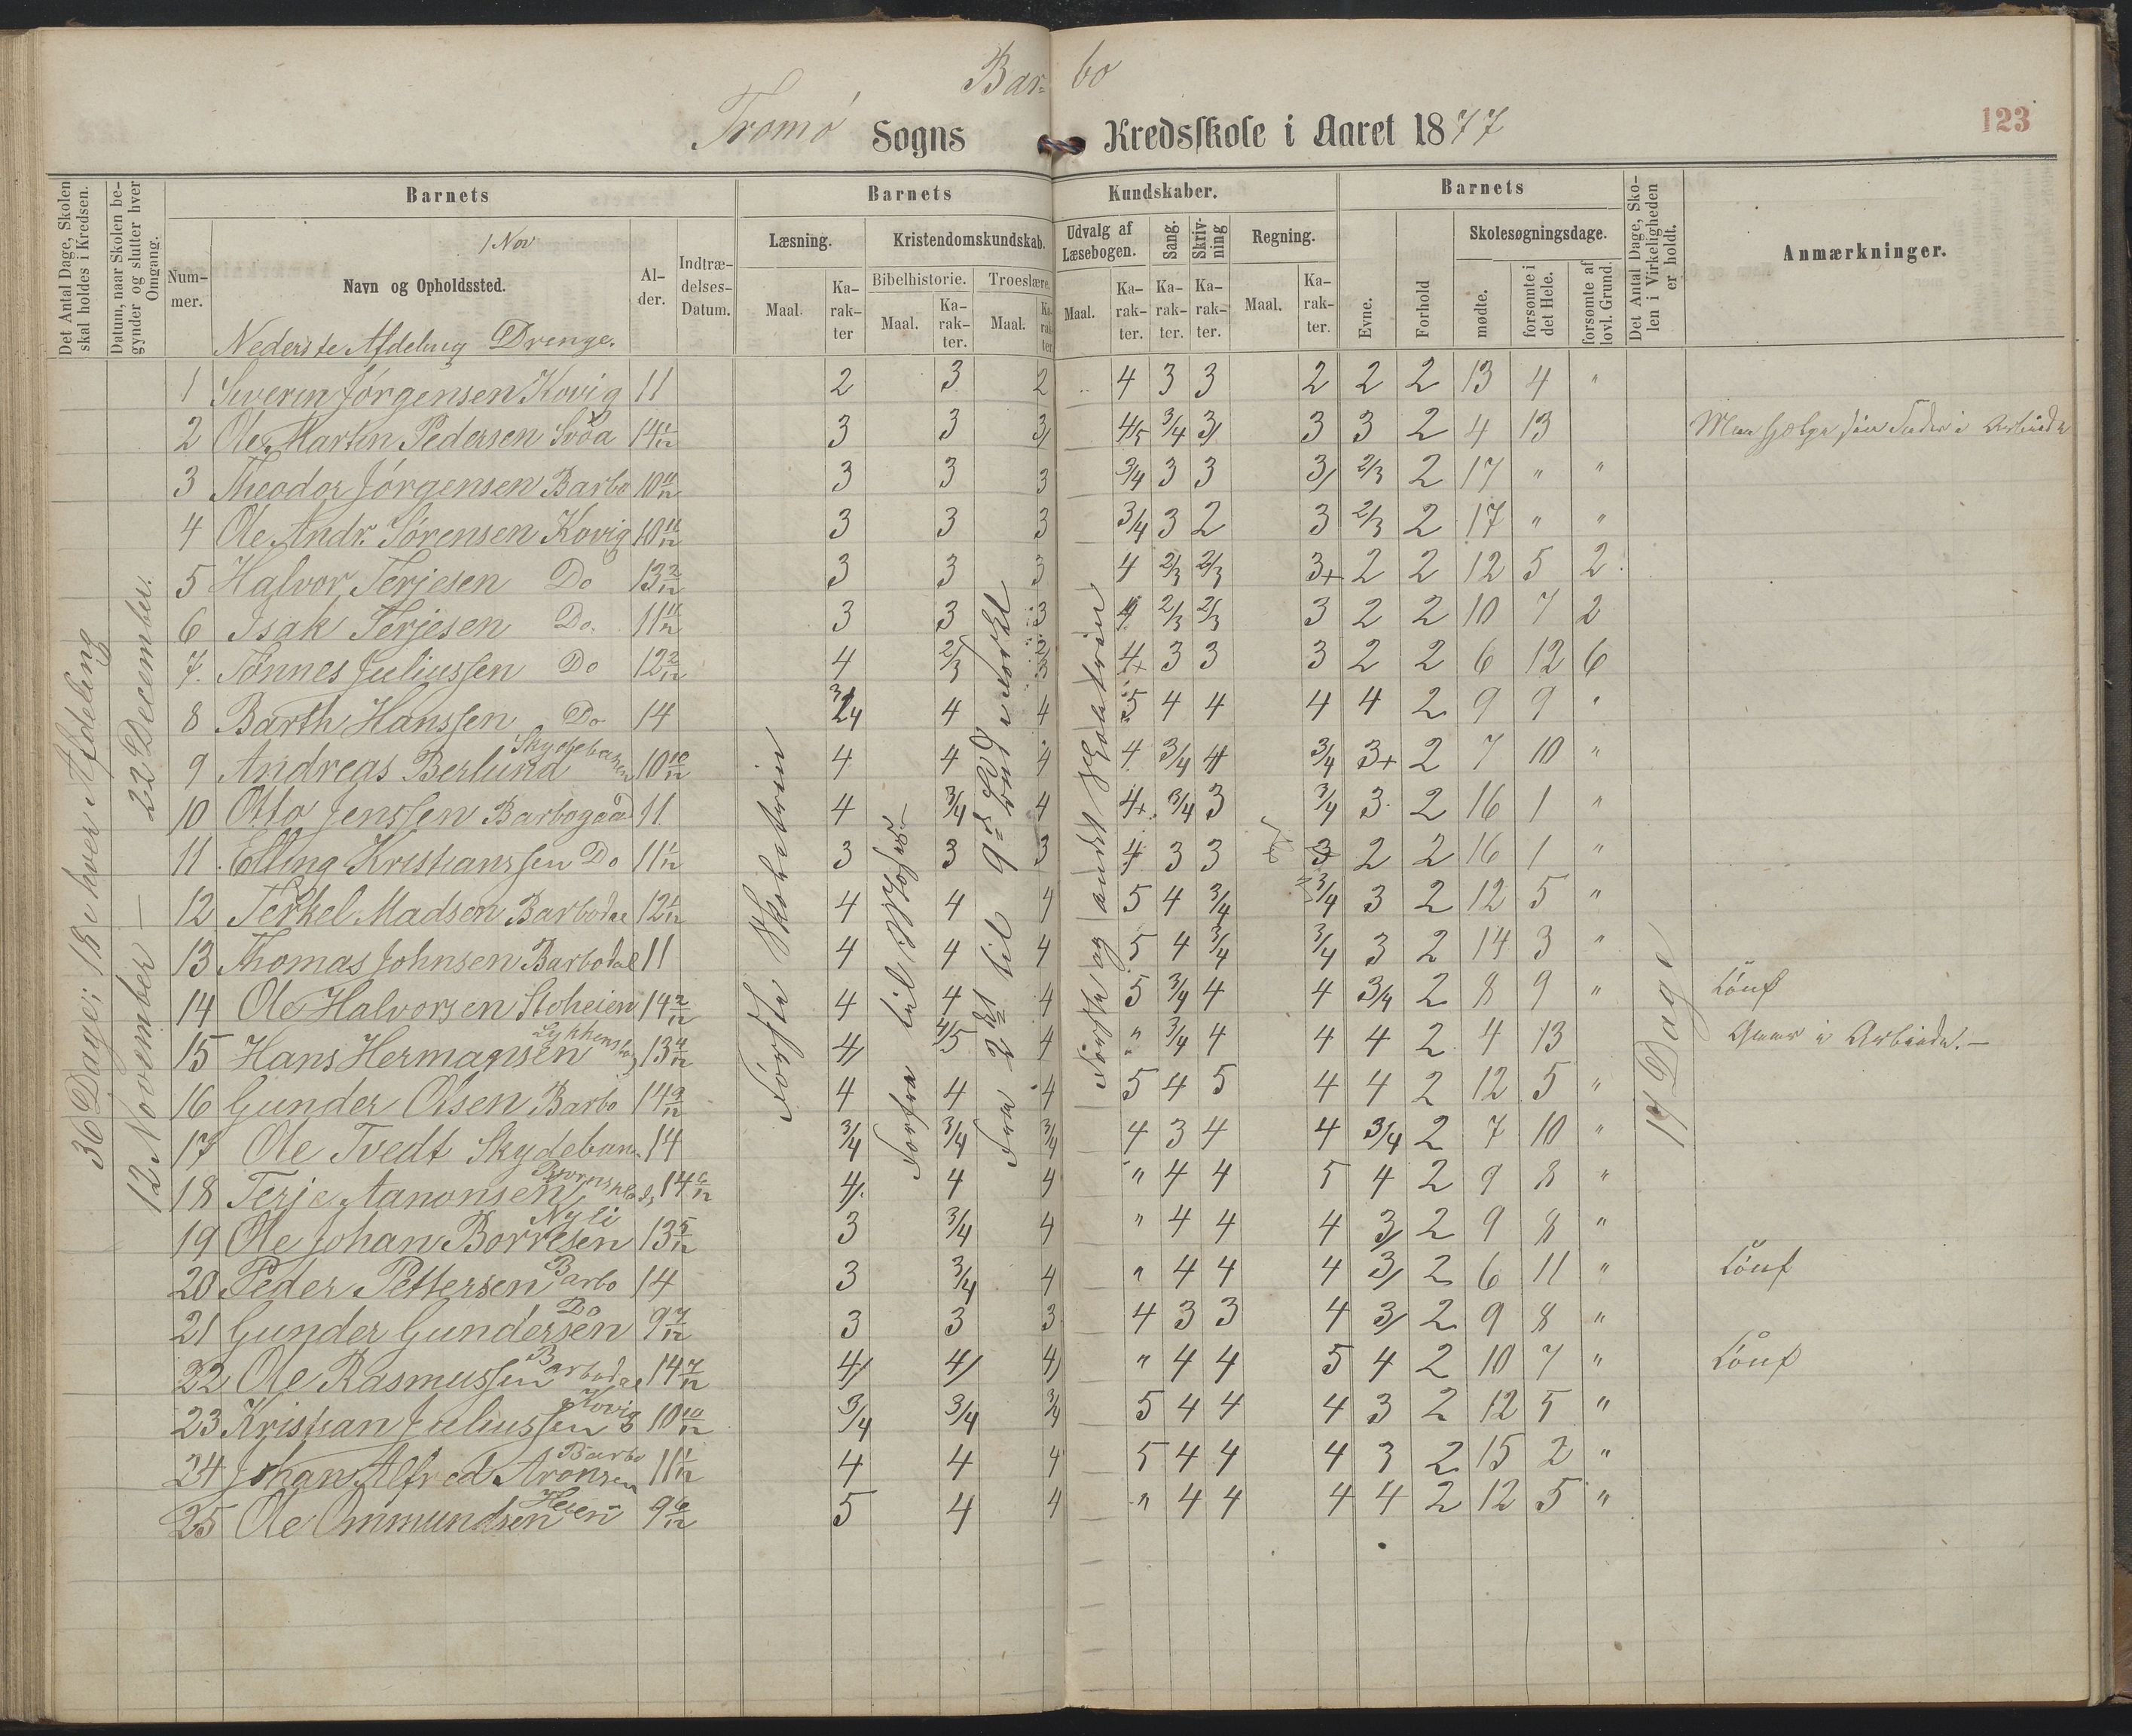 Bar- bo
Tromø Sogns Kredsskole i Aaret 1877
123
Det Antal Dage, Skolen skal holdes i Kredsen.
Datum, naar Skolen begynder og slutter hver Omgang.
Barnets
Barnets Kundskaber.
Barnets
Det Antal Dage, Skolen i Virkeligheden er holdt.
Anmærkninger.
Nummer.
1 Nov
Navn og Opholdssted.
Alder.
Indtrædelses-Datum.
Læsning. Kristendomskundskab. Udvalg af Læsebogen. Sang. Skrivning Regning.
Bibelhistorie. Troeslære.
Maal. Karakter Maal. Karakter. Maal. Karakter Maal. Karakter. Karakter. Karakter. Maal. Karakter.
Evne. Forhold Skolesøgningsdage. mødte. forsømte i det Hele. forsømte af lovl. Grund.
Nederste Afdeling Drenge.
36 Dage: 18 i hver Afdeling
12 November — 22 December.
Første Skoletrin
Forfra til
Fra 2det til 9de Bud
Første og andet Skoletrin
17 Dage
1 Severin Jørgensen Kovig 11 2 3 2 4 3 3 2 2 2 13 4 "
2 Ole Martin Pedersen 14 1/12 3 3 3/ 4/5 3/4 3/ 3 3 2 4 13
3 Theodor Jørgensen Barbo 10 11/12 3 3 3 3/4 3 3 3/ 2/3 2 17 " "
4 Ole Andr. Sørensen Kovig 10 11/12 3 3 3 3/4 3 2 3 2/3 2 17 " "
5 Halvor Terjesen Do 13 2/12 3 3 3 4 2/3 2/3 3+ 2 2 12 5 2
6 Isak Terjesen Do. 11 11/12 3 3 3 4 2/3 2/3 3 2 2 10 7 2
7. Tönnes Juliussen Do 12 2/12 4 2/3 2/3 4+ 3 3 3 2 2 6 12 6
8 Barth Hanssen Do 14 4 4 5 4 4 4 4 2 9 9 "
9 Andreas Berlund Skydebanen 10 10/12 4 4 4 4 3/4 4 3/4 3+ 2 7 10 "
10 Otto Jenssen Barbogaad 11 4 3/4 4 4+ 3/4 3 3/4 3 2 16 1 "
11. Elling Kristianssen Do 11 1/12 3 3 3 4 3 3 3 2 2 16 1 "
12 Terkel Madsen Barbodal 12 1/12 4 4 4 5 4 3/4 3/4 3 2 12 5 "
13 Thomas Johnsen Barbodal 11 4 4 4 5 4 3/4 3/4 3 2 14 3 "
14 Ole Halvorsen Stoheien 14 2/12 4 4 4 5 3/4 4 4 3/4 2 8 9 "
15 Hans Hermansen 13 4/12 4/ 4/5 4 " 3/4 4 4 4 2 4 13
16 Gunder Olsen Barbo 14 9/12 4 4 4 5 4 5 4 4 2 12 5 "
17 Ole Tvedt Skydeban. 14 3/4 3/4 3/4 4 3 4 4 3/4 2 7 10 "
18 Terje Aanonsen 14 6/12 4/. 4 4 " 4 4 5 4 2 9 8 "
19 Ole Johan Borresen Nyli 13 5/12 3 3/4 4 " 4 4 4 3/ 2 9 8 "
20 Peder Pettersen Barbo 14 3 3/4 4 " 4 4 4 3/ 2 6 11 "
21 Gunder Gundersen Do 9 7/12 3 3 3 4 3 3 4 3/ 2 9 8 "
22 Ole Rasmussen Barbodal 14 7/12 4/ 4/ 4/ " 4 4 5 4 2 10 7 "
23 Kristian Juliussen Kovig 10 10/12 3/4 3/4 3/4 5 4 4 4 3 2 12 5 "
24 Johan Alfred Aronsen Barbo 11 1/12 4 4 4 5 4 4 4 3 2 15 2 "
25 Ole Ommundsen Heien 9 6/12 5 4 4 " 4 4 4 4 2 12 5 "